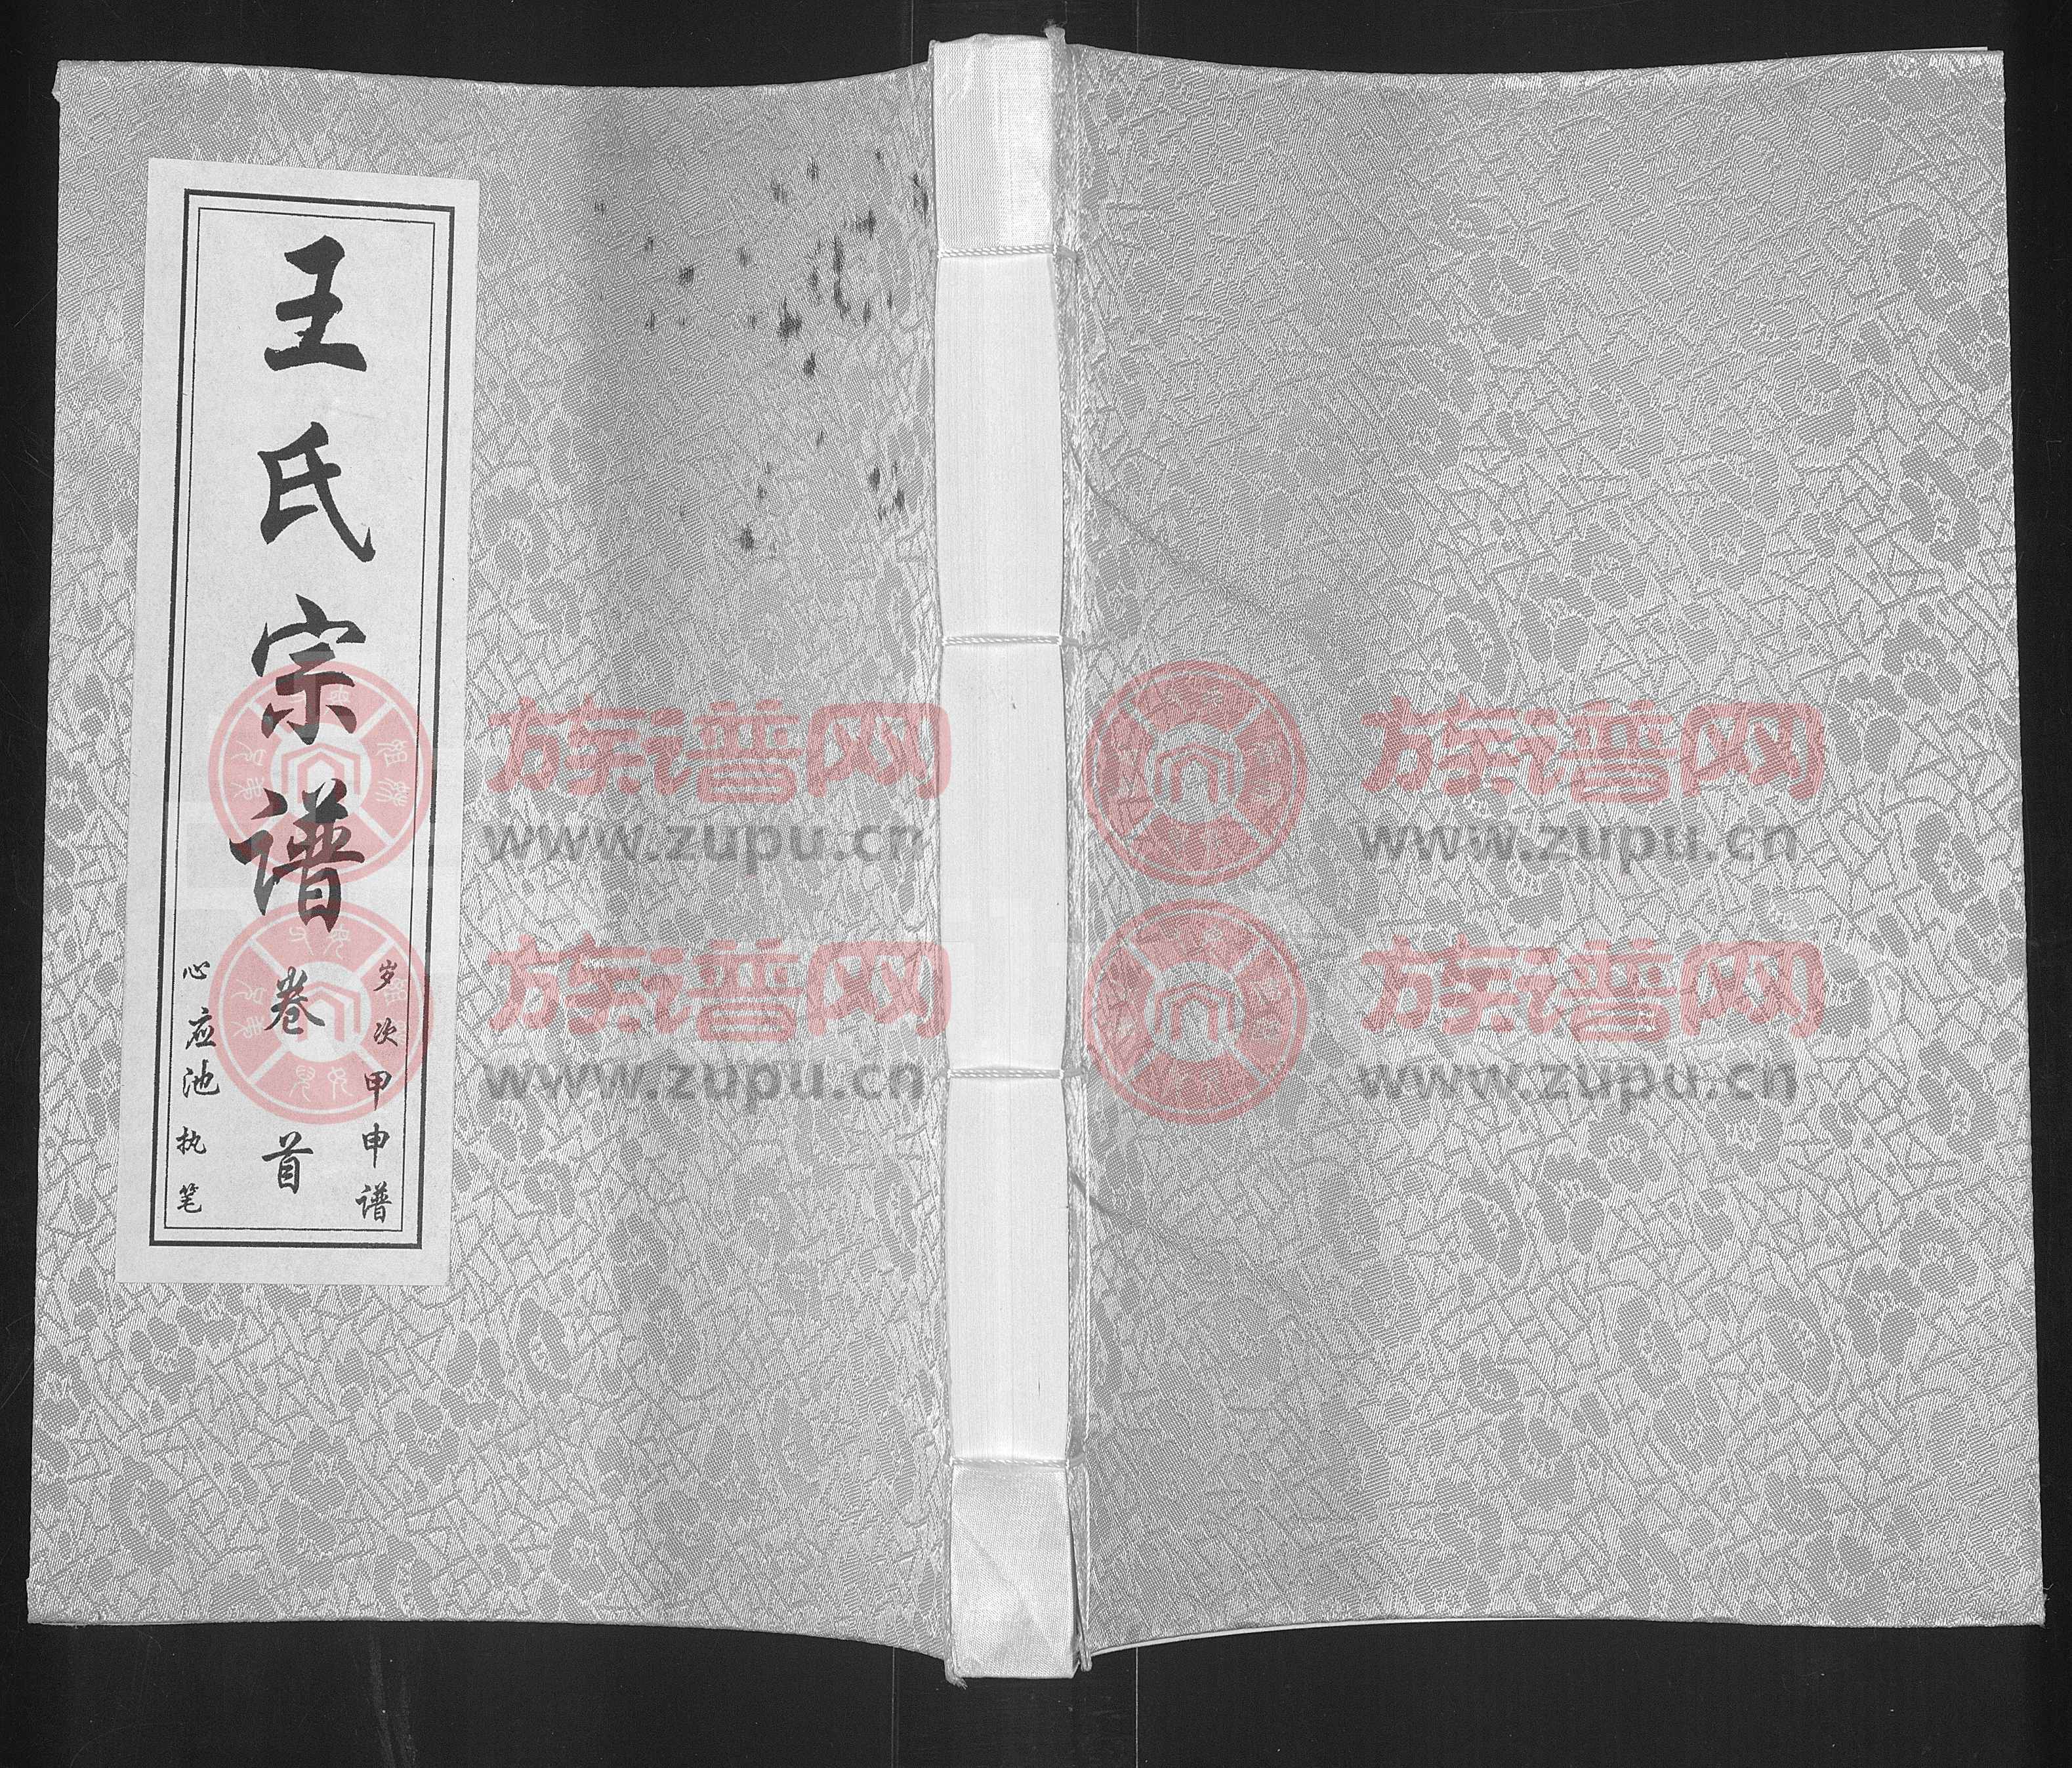 岁次甲申谱
王氏宗谱 卷首
心应池 执笔
族谱网
www.zupu.cn
族谱网
www.zupu.cn
族谱网
www.zupu.cn
族谱网
www.zupu.cn